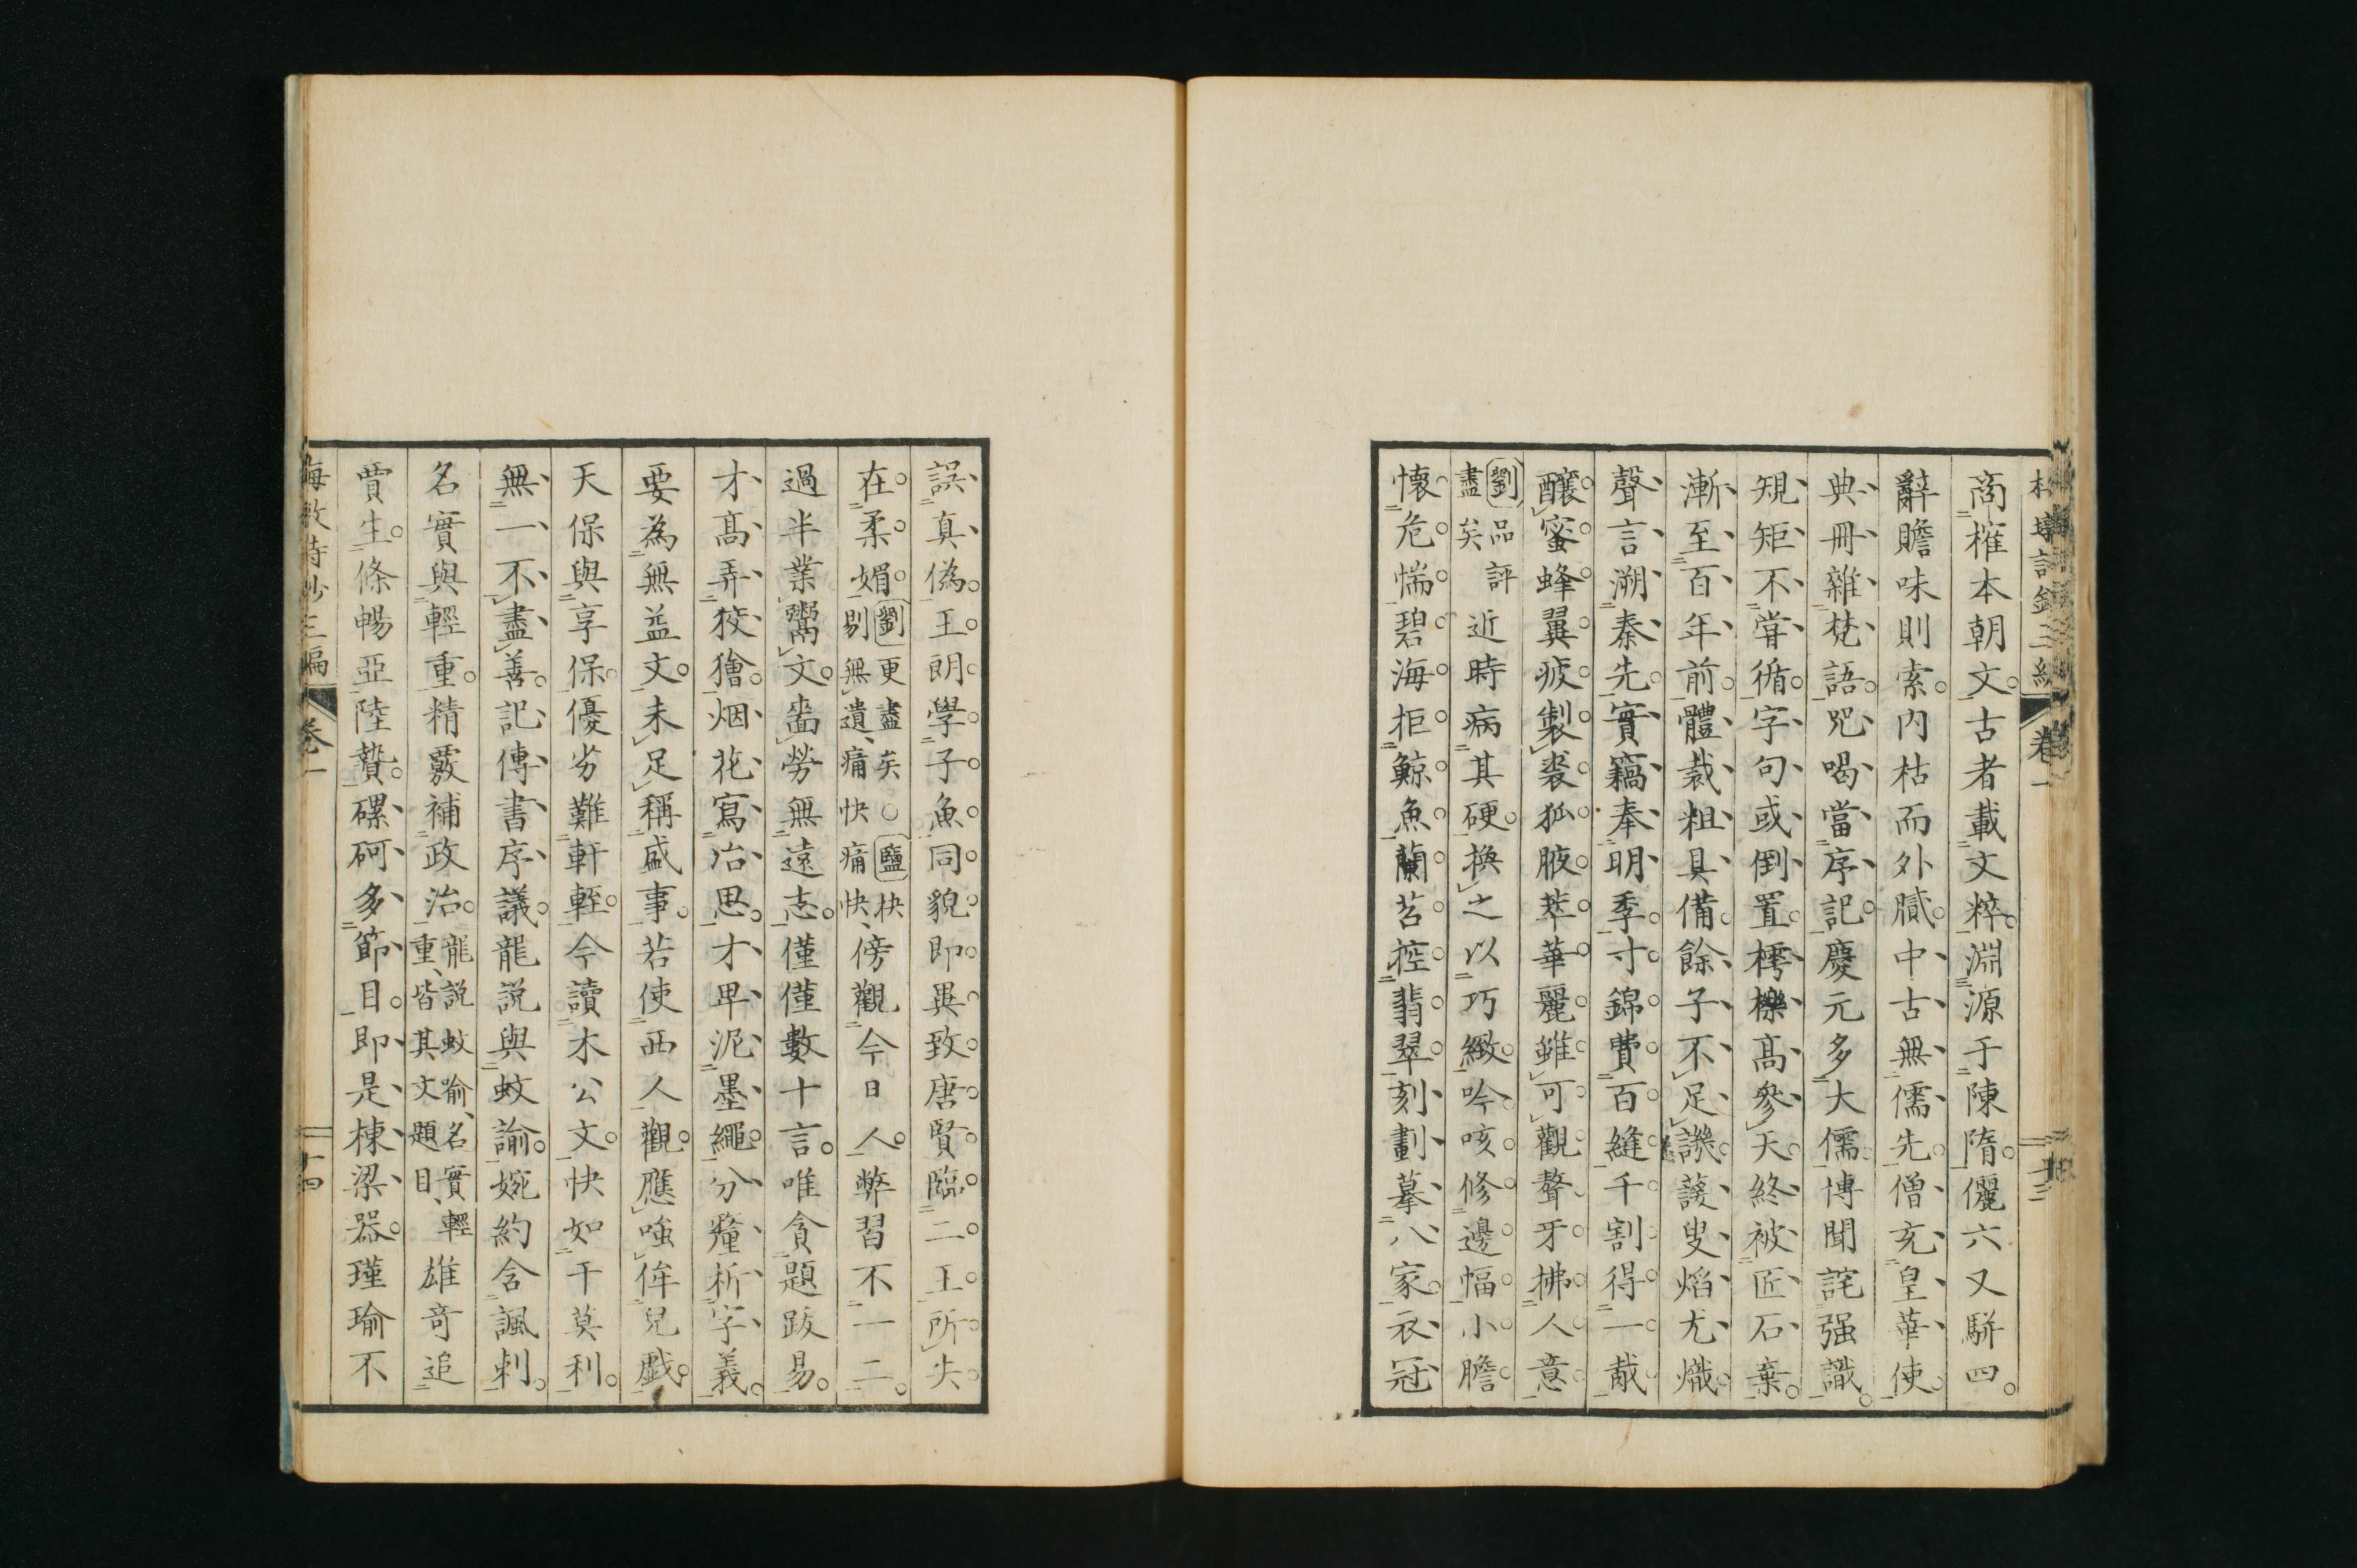 商榷本朝文古者載文粹淵源于陳隋儷六又駢四
辭贍味則索内枯而外膩中古無儒先僧充皇華使
典冊雜梵語咒喝當序記慶元多大儒博聞詫强識
規矩不甞循字句或倒置樗櫟髙參天終被匠石棄
漸至百年前體裁粗具備餘子不足譏蘐叟焰尤熾
聲言溯秦先實竊奉明季寸錦費百縫千割得一胾
釀蜜蜂翼疲製裘狐腋萃華麗雖可觀聱牙拂人意
劉品評
盡矣
近時病其硬換之以巧緻吟咳修邊幅小膽
懐危惴碧海拒鯨魚蘭苕控翡翠刻劃摹八家衣冠
卷一
誤真偽王朗學子魚同貌即異致唐賢臨二王所失
在柔媚
劉更盡矣○鹽快
剔無遺痛快痛快
傍觀今日人弊習不一二
過半業鬻文啚勞無遠志僅僅數十言唯貪題跋易
才髙弄狡獪烟花寫冶思才卑泥墨繩分釐析字義
要為無益文未足稱盛事若使西人觀應嗤侔兒戯
天保與享保優劣難軒輊今讀木公文快如干莫利
無一不盡善記傳書序議龍説與蚊諭婉約含諷刺
名實與輕重精覈補政治
龍説蚊喻名實輕
重皆其文題目
雄竒追
賈生條暢亞陸贄磥砢多節目即是棟梁器瑾瑜不
卷一
十四